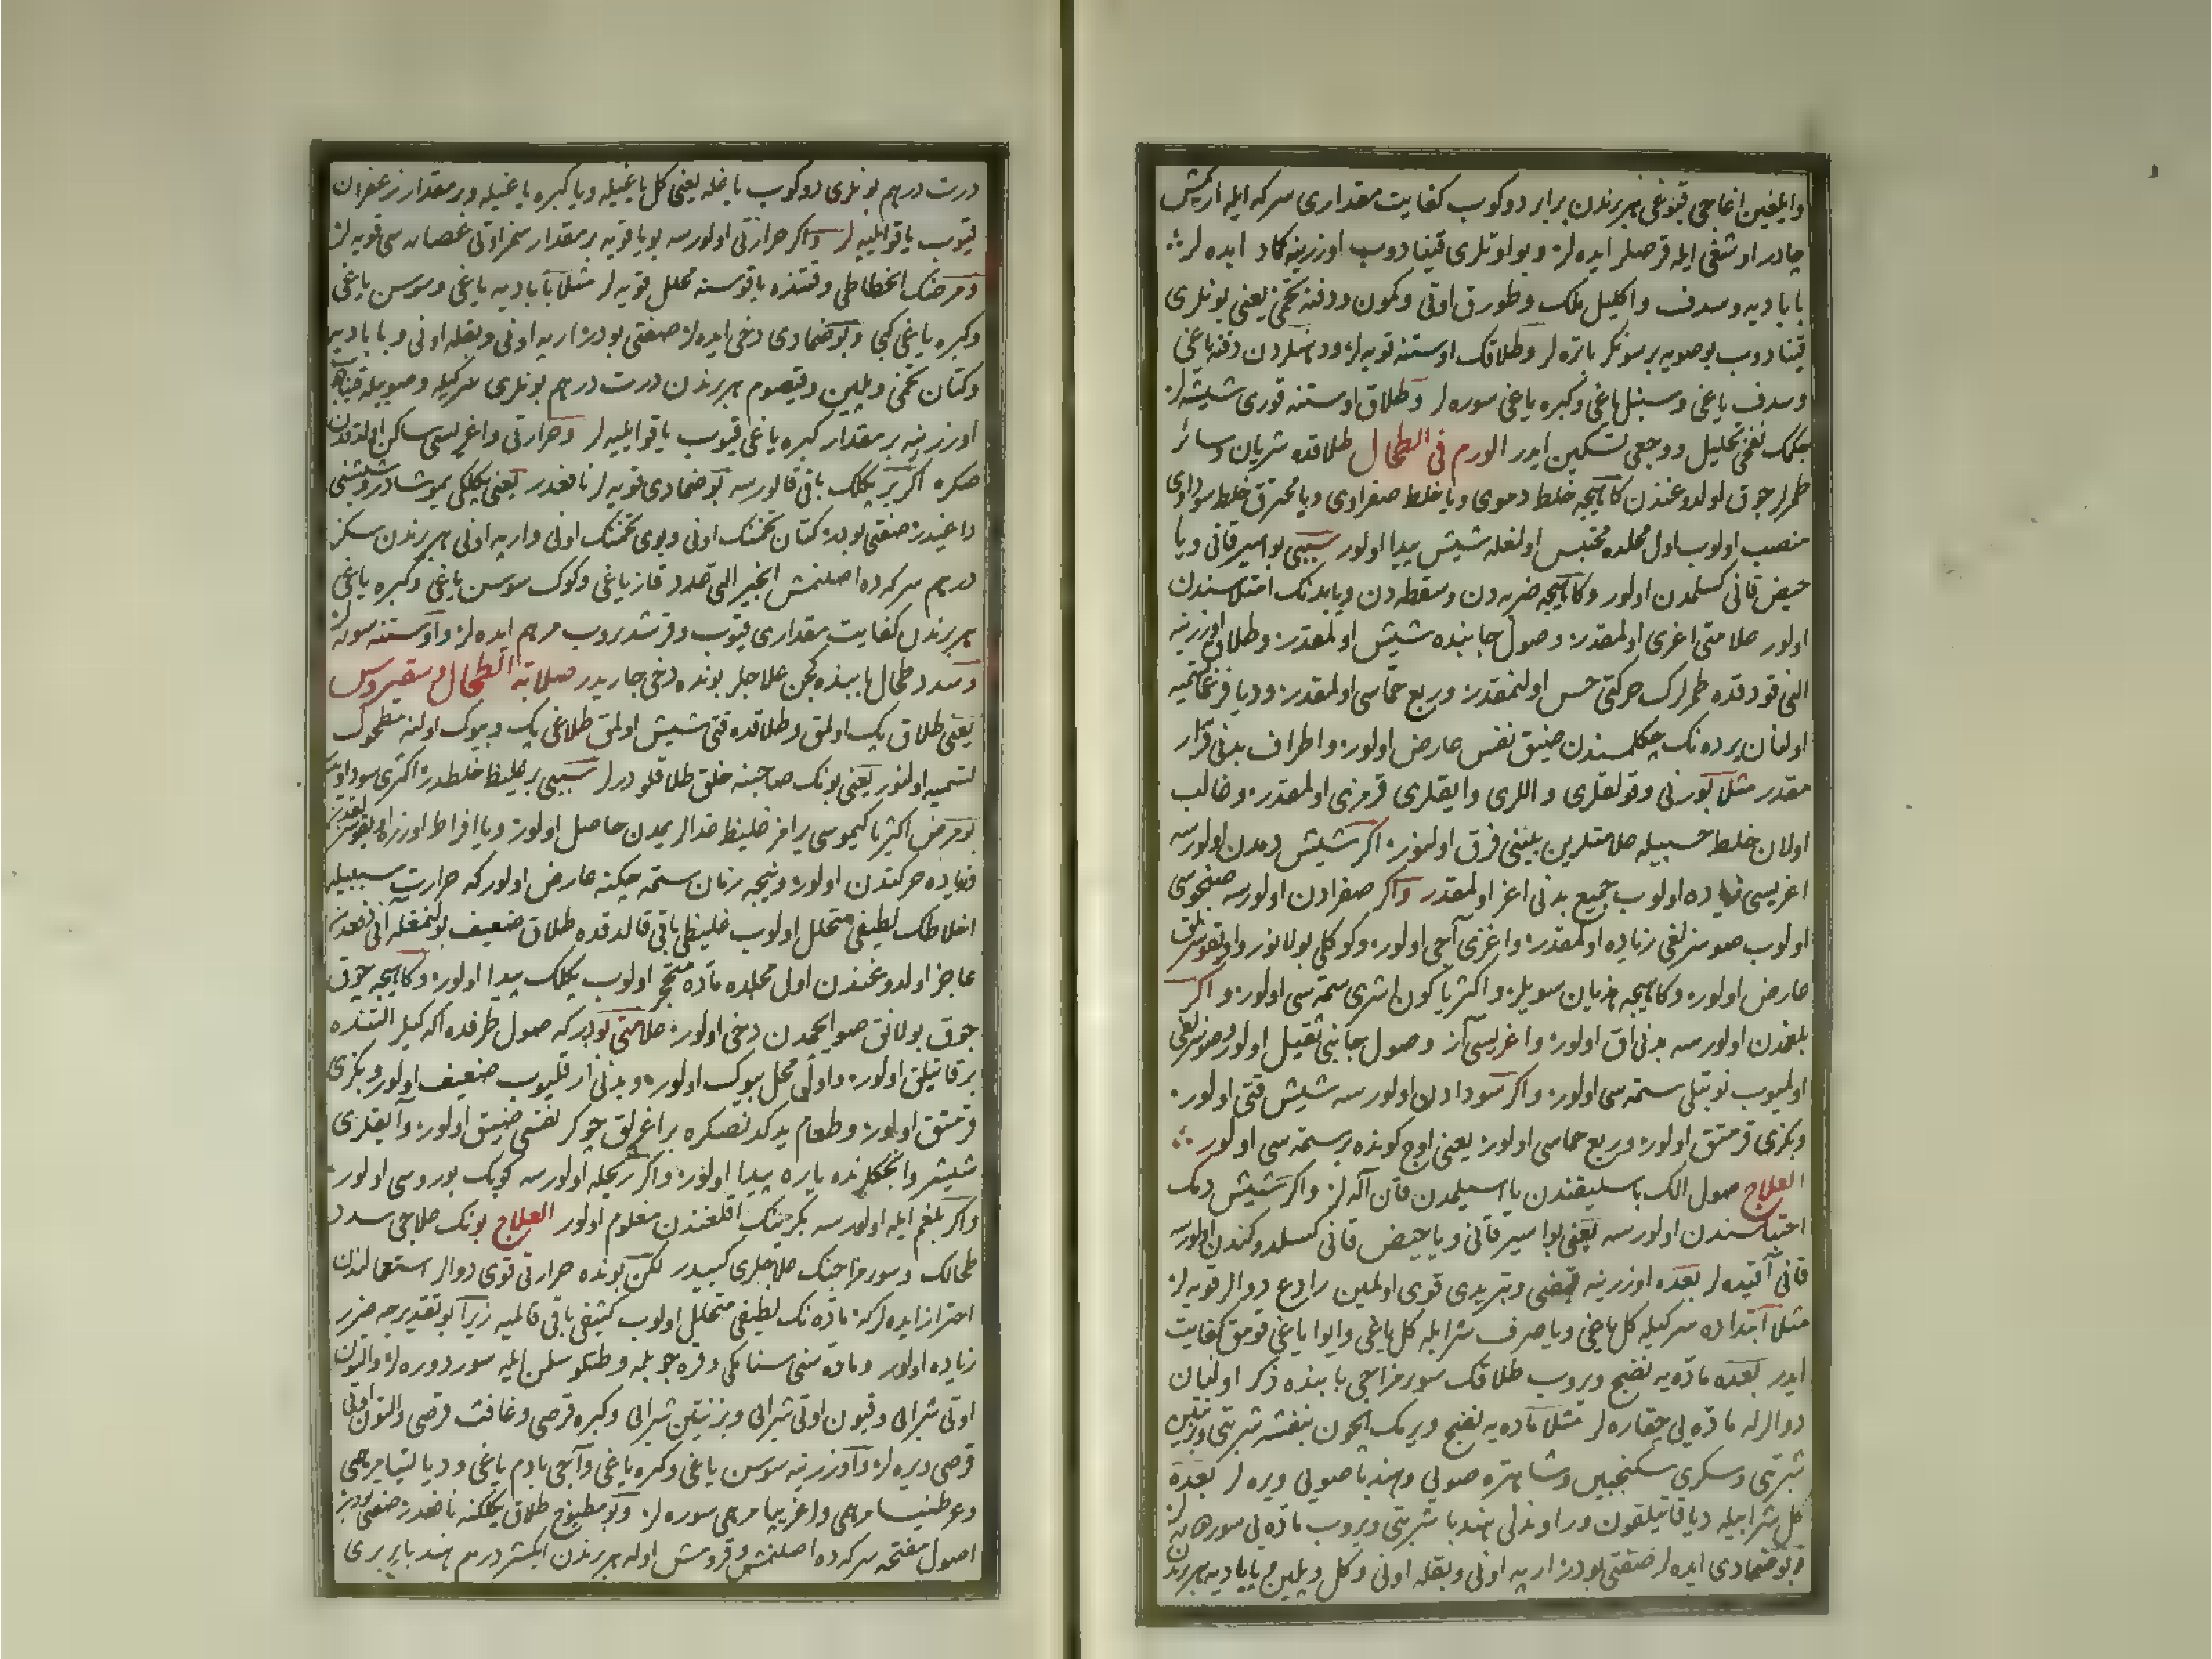 وایلغین اغاجی قبوغی هر برندن برابر دوکوب کفایت مقداری سرکه ایله ارکمش
چادر اوشغی ایله قرصلر ایده لر و بو اوتلری قینادوب اوزرینه کماد ایده لر
بابادیه وسدف واکلیل ملک وطورق اوتی وکمون ودفنه تخمی یعنی بونلری
قینادوب بو صویه بر سونکر باتره لر وطلاقک اوستنه قویه لر ودهنلردن دفنه یاغی
وسدف یاغی وسنبل یاغی وکبره یاغی سوره لر وطلاق اوستنه قوری شیشه لر
چکمک نفخی تحلیل ووجعی تسکین ایدر الورم فی الطحال طلاقده شریان وسائر
طمرلر چوق اولدوغندن کاهیجه خلط دموی ویا خلط صفراوی ویا محترق خلط سوداوی
منصب اولوب اول محلده محتبس اولمغله شیش پیدا اولور سببی بواسیر قانی ویا
حیض قانی کسلمدن اولور وکاهیجه ضربه دن وسقطه دن ویا بدنک امتلاسندن
اولور علامتی اغری اولمقدر وصول جانبنده شیش اولمقدر وطلاق اوزرینه
الی قودقده طمرلرک حرکتی حس اولنمقدر وربع حماسی اولمقدر ودیافرغما تسمیه
اولنان پرده نک چکلمسندن ضیق نفس عارض اولور واطراف بدنی قزار
مقدر مثلا بورنی وقولقلری واللری وایقلری قرمزی اولمقدر وغالب
اولان خلط حسبیله علامتلرین بلینی فرق اولنور اکر شیش دمدن اولورسه
اغریسی زیاده اولوب جمیع بدنی اغر اولمقدر واکر صفرادن اولورسه صنجوسی
اولوب صوسزلغی زیاده اولمقدر واغزی آجی اولور وکوکلی بولانور واویقوسزلق
عارض اولور وکاهیجه هذیان سویلر واکثریا کون اشری ستمه سی اولور واکر
بلغمدن اولورسه بدنی اق اولور واغریسی آز وصول جانبی ثقیل اولور وصوسزلغی
اولمیوب نوبتلی ستمه سی اولور واکر سودادن اولورسه شیش قتی اولور
وبکزی قرمتق اولور وربع حماسی اولور یعنی اوچ کونده بر ستمه سی اولور
العلاج صول الک باسلیقندن یا اسیلمدن قان آله لر واکر شیش دمک
احتباسندن اولورسه یعنی بواسیر قانی ویا حیض قانی کسلدوکندن اولورسه
قانی آقیده لر بعده اوزرینه قبضی وتبریدی قوی اولمین رادع دوالر قویه لر
مثلا ابتداده سرکیله کل یاغی ویا صرف شراب ایله کل یاغی وایوا یاغی قومق کفایت
ایدر بعده ماده یه نضج ویروب طلاقک سوء مزاجی بابنده ذکر اولنان
دوالرله ماده یی چقاره لر مثلا ماده یه نضج ویرمک ایچون بنفشه شربتی وبزنتین
شربتی وسکری سکنجبین وشاهتره صویی وهندبا صویی ویره لر بعده
کل شرابیله دیاقاتیلقون وراوندلی هندبا شربتی ویروب ماده یی سوره لر
وبو ضمادی ایده لر صفتی بودر ارپه اونی وبقله اونی وکل وپلین وپاپادیه هر برندن
درت درهم بونلری دوکوب یاغله یعنی کل یاغیله ویا کبره یاغیله وبر مقدار زعفران
قیوب یاقو ایلیه لر واکر حرارتی اولورسه بو یاقویه بر مقدار سمزاوتی عصاره سی قویه لر
ومرضک انحطاطی وقتنده یاقوسنه محلل قویه لر مثلا بابادیه یاغی وسوسن یاغی
وکبره یاغی کبی وبو ضمادی دخی ایده لر صفتی بودر ارپه اونی وبقله اونی وبابادیه
وکتان تخمی وپلین وقیصوم هر برندن درت درهم بونلری سرکیله وصویله قینادوب
اوزرینه بر مقدار کبره یاغی قیوب یاقو ایلیه لر وحرارتی واغریسی ساکن اولدقدن
صکره اکر بر پکلک باقی قالورسه بو ضمادی قویه لر نافعدر یعنی پکلکی یموشادر وشیشنی
داغیدر صفتی بودر کتان تخمنک اونی وبوی تخمنک اونی وارپه اونی هر برندن سکز
درهم سرکه ده اصلنمش انجیر الی عدد قاز یاغی وکوک سوسن یاغی وکبره یاغی
هر برندن کفایت مقداری قیوب وقرشدیروب مرهم ایده لر واوستنه سوره لر
وسدد طحال بابنده کچن علاجلر بونده دخی جاریدر صلابة الطحال وسقیروس
یعنی طلاق پک اولمق وطلاقده قتی شیش اولمق طلاغی پک وبیوک اولنه مطحول
تسمیه اولنور یعنی بونک صاحبنه خلق طلاقلو درلر سببی بر غلیظ خلطدر اکثری سوداوی
بو مرض اکثریا کیموسی یرامز غلیظ غدالر یمدن حاصل اولور ویا افراط اوزره اویقوسزلقدن
وزیاده حرکتدن اولور ونیجه زمان ستمه چکنه عارض اولور که حرارت سببیله
اخلاطک لطیفی متحلل اولوب غلیظی باقی قالدقده طلاق ضعیف بولنمغله انی دفعدن
عاجز اولدوغندن اول محلده ماده متحجر اولوب پکلک پیدا اولور وکاهیجه چوق
چوق بولانق صو ایچمدن دخی اولور علامتی بودر که صول طرفده اکه کیلر التنده
بر قاتیلق اولور واول محل بیوک اولور وبدنی ارقلیوب ضعیف اولور وبکزی
قرمتق اولور وطعام یدکدنصکره بر اغرلق چوکر نفسی ضیق اولور وآیقلری
شیشر وانجکلرنده یاره پیدا اولور واکر ریحله اولورسه کوبک بوروسی اولور
واکر بلغم ایله اولورسه بکزینک اقلغندن معلوم اولور العلاج بونک علاجی سدد
طحالک وسوء مزاجنک علاجلری کبیدر لکن بونده حرارتی قوی دوالر استعمالندن
احتراز ایده لر که ماده نک لطیفی متحلل اولوب کثیفی باقی قالمیه زیرا بو تقدیرجه ضرر
زیاده اولور وماده سنی سنامکی وقره چوپلمه وطتلو سلمن ایله سوردوره لر والتون
اوتی شرابی وقیون اوتی شرابی وبزنتین شرابی وکبره قرصی وغافث قرصی والتون اوتی
قرصی ویره لر واوزرینه سوسن یاغی وکبره یاغی وآجی بادم یاغی ودیالتیا مرهمی
وعرطنیسا مرهمی واغریپا مرهمی سوره لر وبو مطبوخ طلاق پکلکنه نافعدر صفتی بودر
اصول مفتحه سرکه ده اصلنمش وقرومش اوله هر برندن ایکیشر درهم هندبا بربری